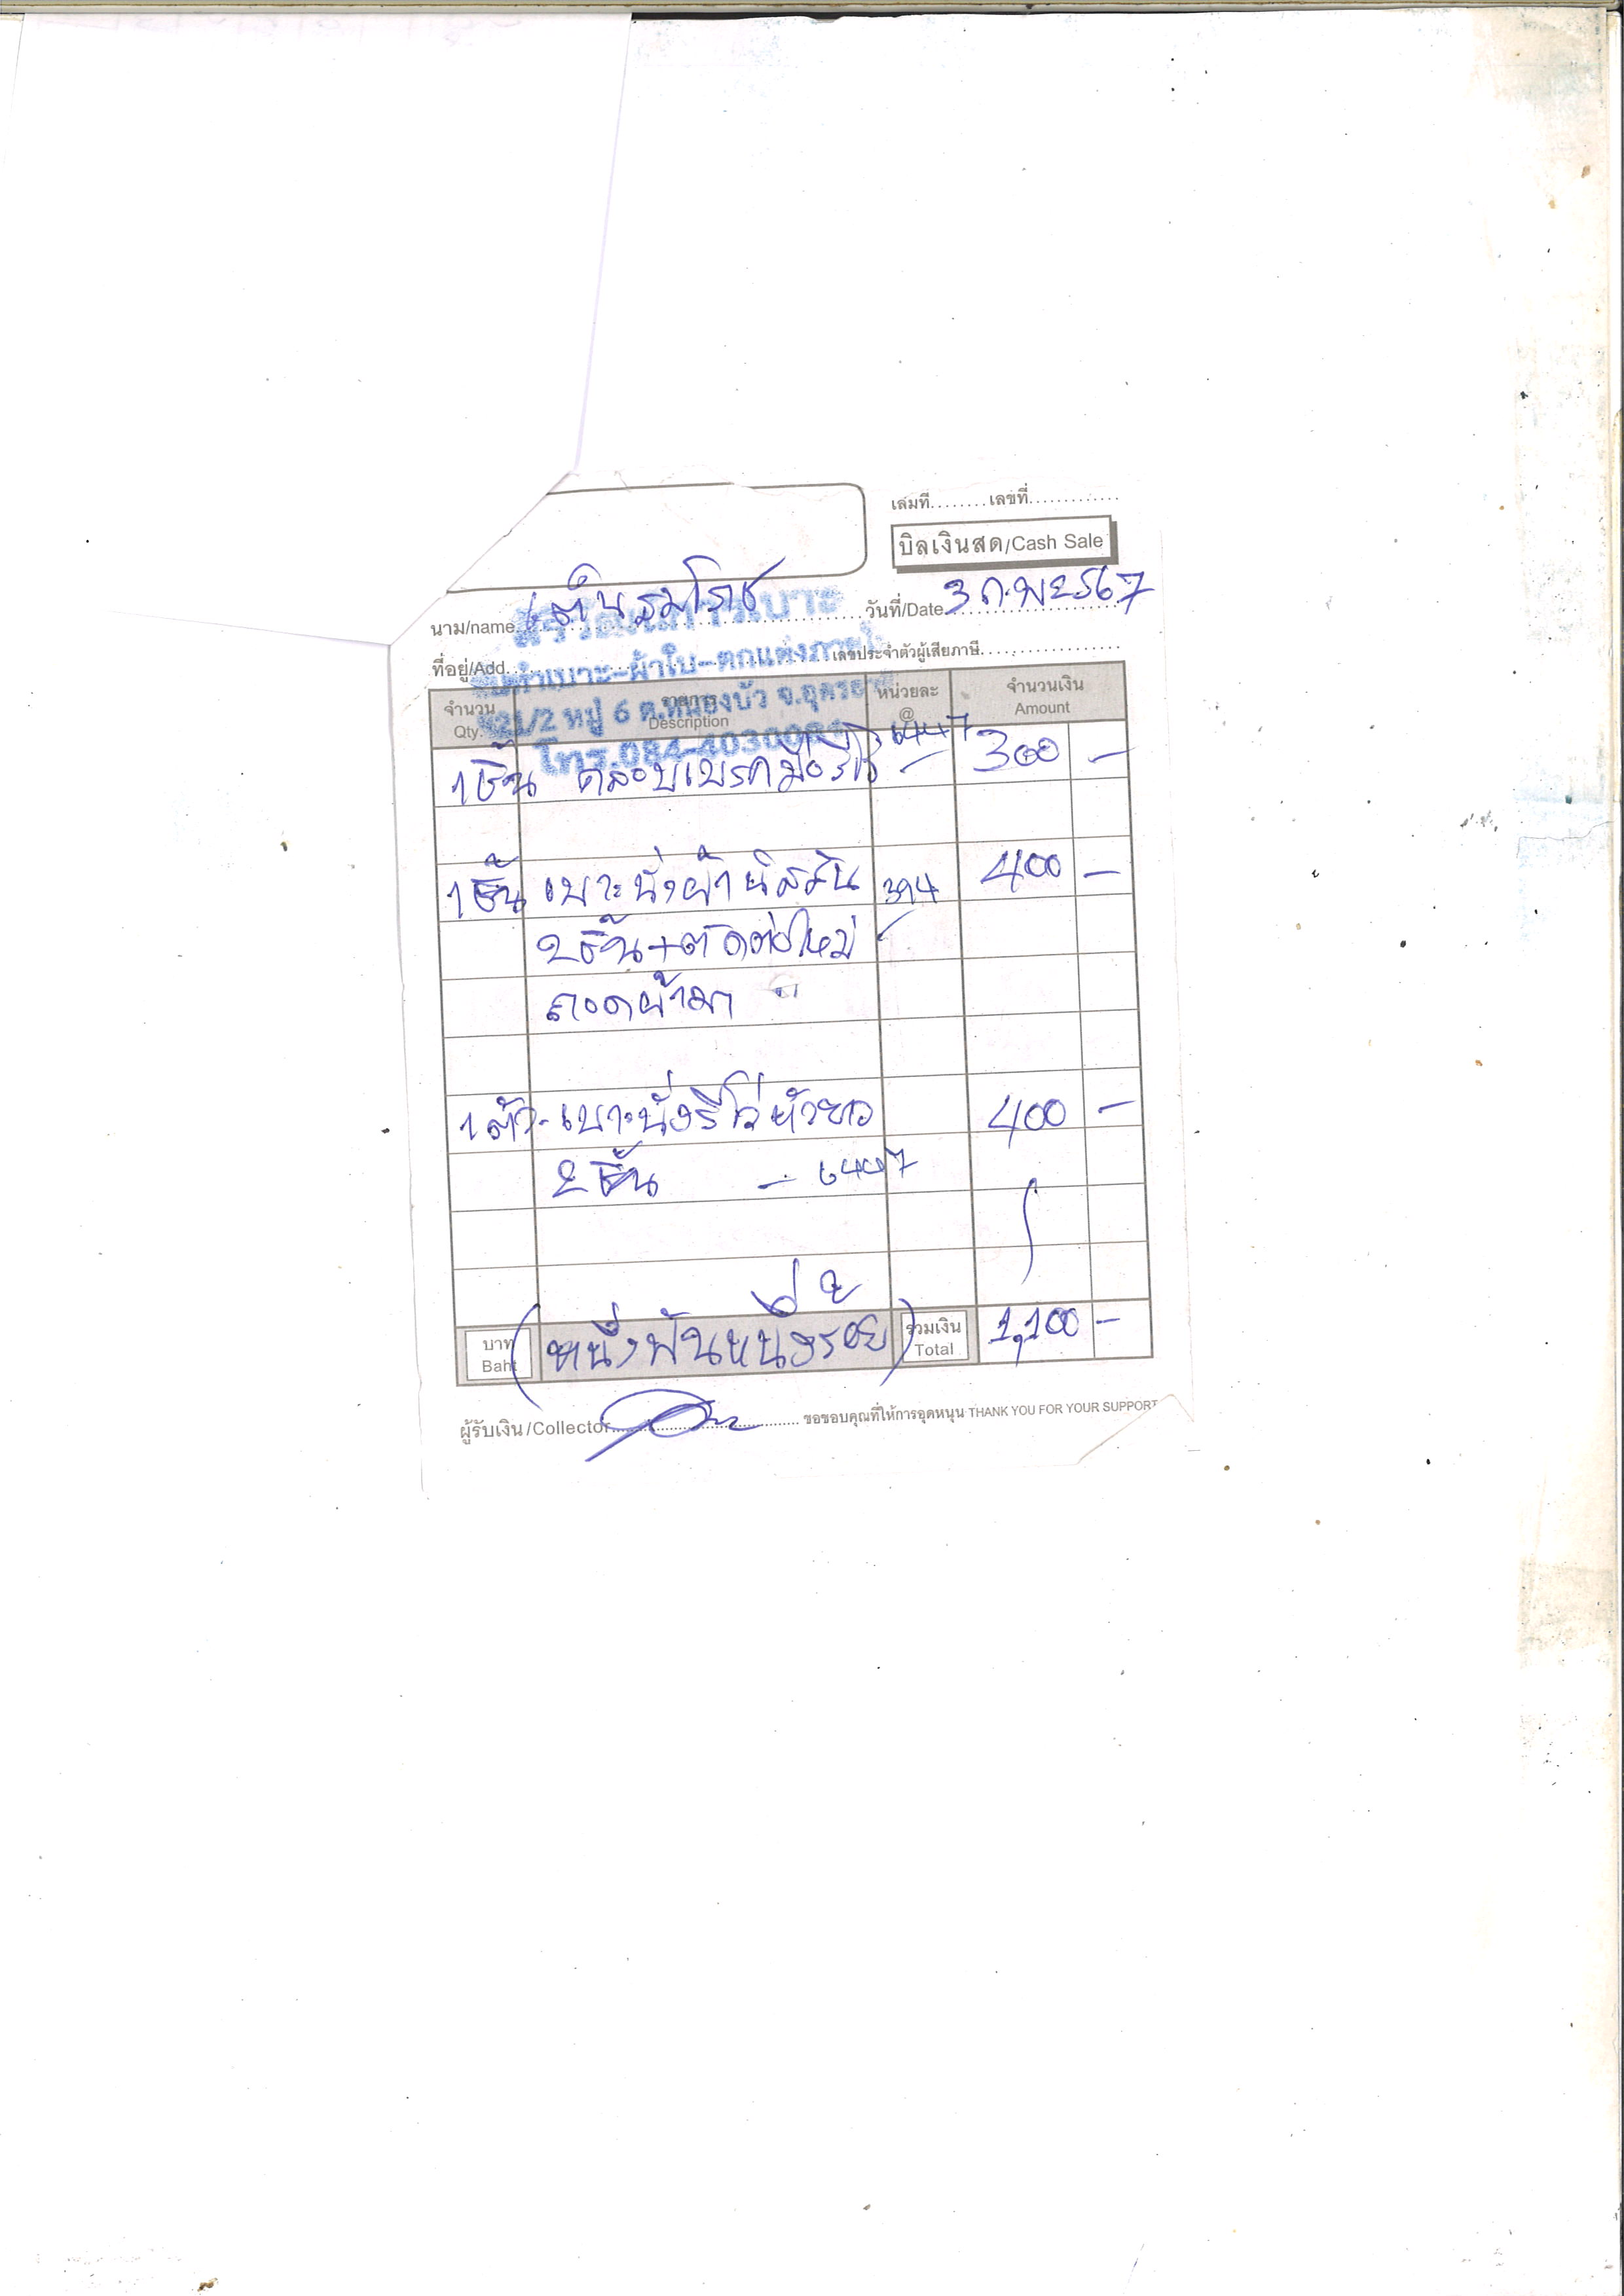 เล่มที่........เลขที่.............
บิลเงินสด/Cash Sale
นาม/name
วันที่/Date 3 ก.พ 2567
ที่อยู่/Add. เลขประจำตัวผู้เสียภาษี
เบาะ-ผ้าใบ-ตกแต่งภายใน
/2 หมู่ 6 ต.หนองบัว จ.อุดรธานี
โทร.084-40300
จำนวน รายการ หน่วยละ จำนวนเงิน
Qty. Description @ Amount
1ชิ้น ครอบเบรคมือรีโว่ 6447 300 -
1ชิ้น เบาะนั่งผ้านิสสัน 394 400 -
2ชิ้น+ตัดต่อใหม่
ถอดผ้ามา
1ตัว เบาะนั่งรีโว่หัวยาว 400 -
2 ชิ้น - 6447
บาท (หนึ่งพันหนึ่งร้อย) รวมเงิน 1,100 -
Baht Total
ผู้รับเงิน/Collector ขอขอบคุณที่ให้การอุดหนุน THANK YOU FOR YOUR SUPPORT